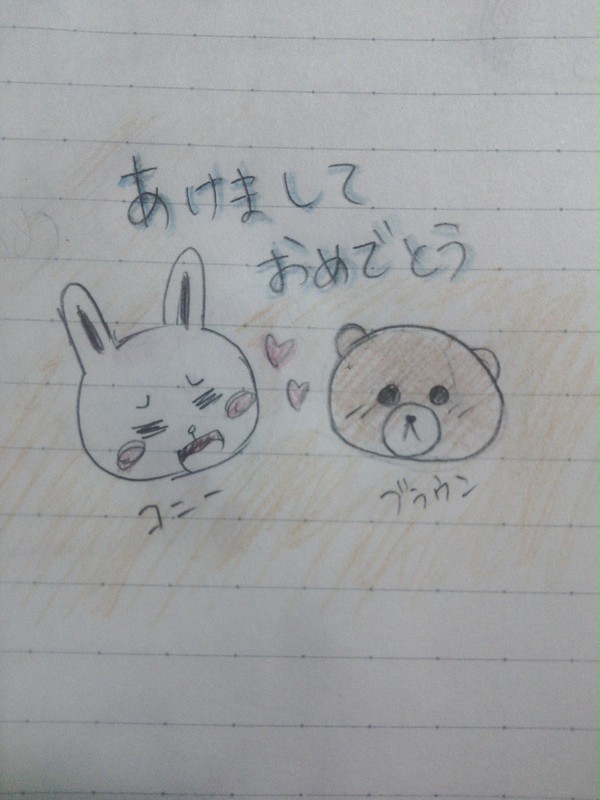 あけまして
おめでとう
コニー
ブラウン